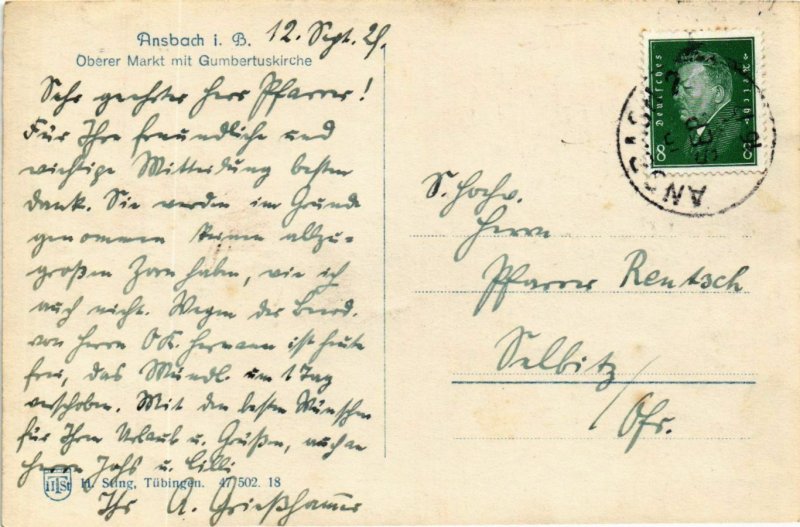 Ansbach i. B. 12. Sept. 29.
Oberer Markt mit Gumbertuskirche
Sehr geehrter Herr Pfarrer!
Für Ihre freundliche und
wichtige Mitteilung besten
Dank. Sie werden im Grunde
genommen keinen allzu-
großen Zorn haben, wie ich
auch nicht. Wegen der Beerd.
von Herrn OK. Hermann ist heute
frei, das Mündl. um 1 Tag
verschoben. Mit den besten Wünschen
für Ihren Urlaub u. Grüßen, auch an
Herrn Johs u. Lilli
Ihr A. Grießhammer
HTSt H. Sting, Tübingen. 47 502. 18
Deutsches Reich
8 8
ANSBACH
S. Hochw.
Herrn
Pfarrer Rentsch
Selbitz/
Ofr.